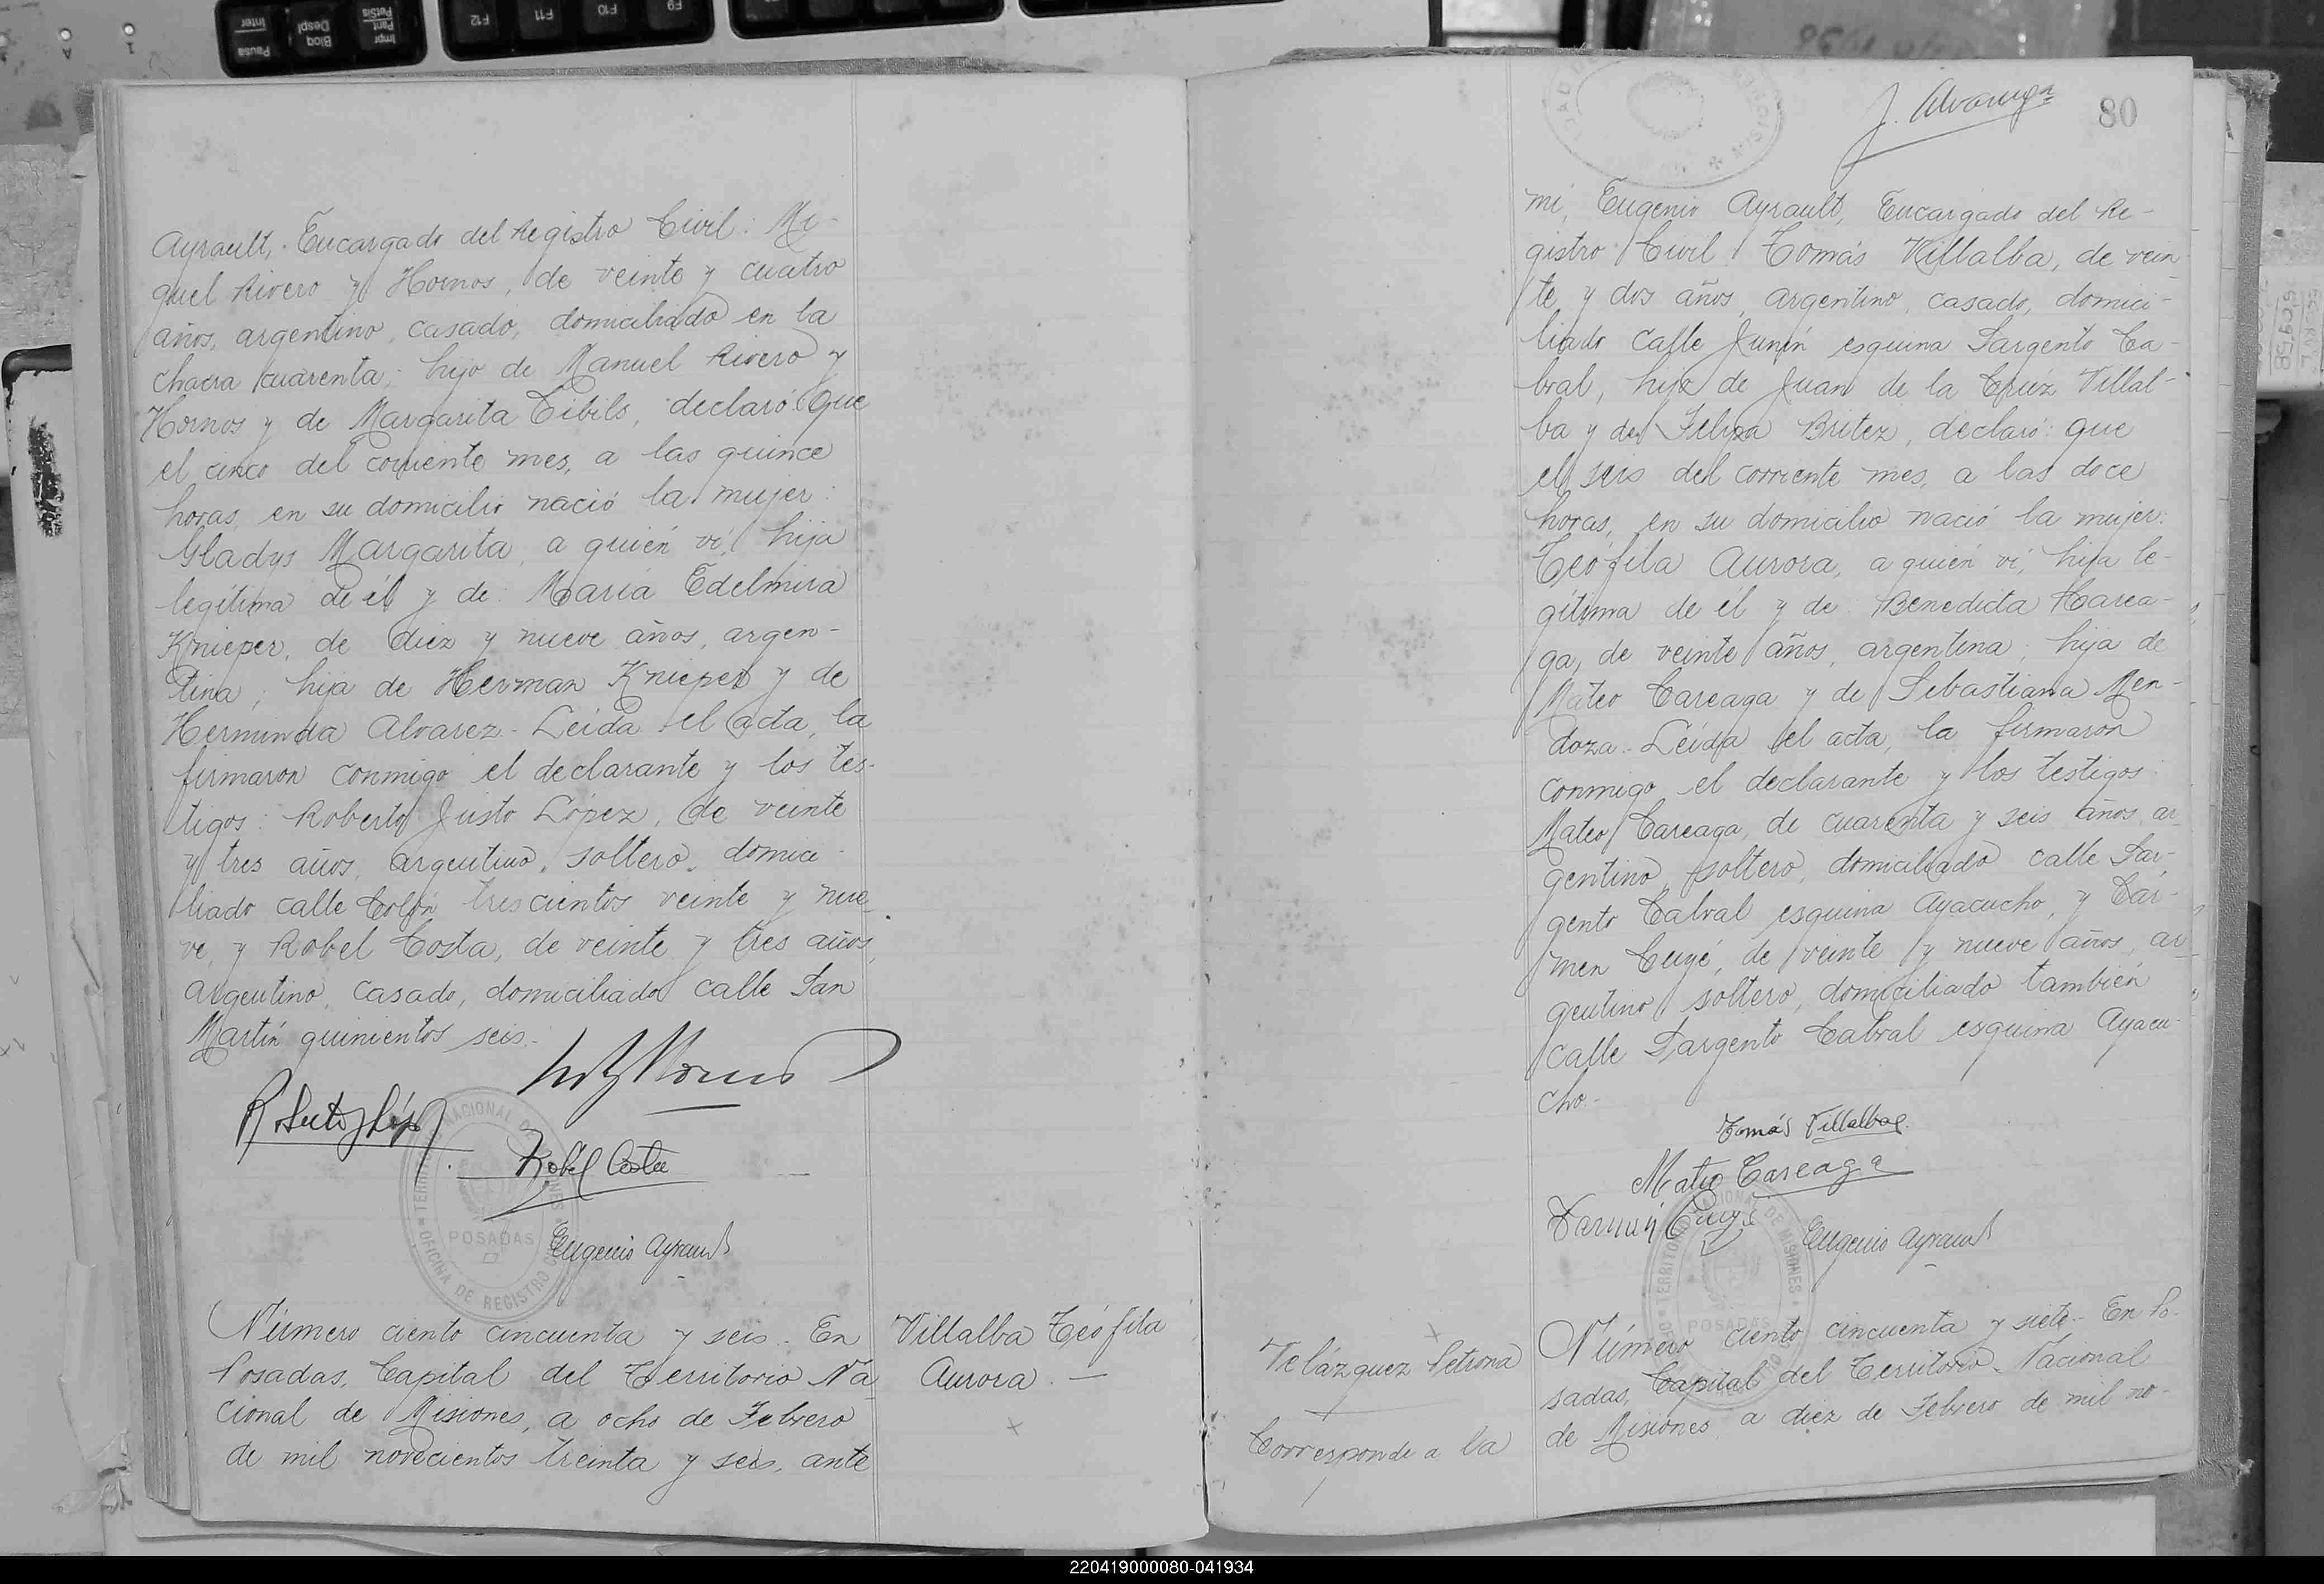 Ayrault, Encargado del Registro Civil: Mi-
guel Rivero y Hornos, de veinte y cuatro
años, argentino, casado, domiciliado en la
chacra cuarenta; hijo de Manuel Rivero y
Hornos y de Margarita Cibils, declaró: que
el cinco del corriente mes, a las quince
horas, en su domicilio nació la mujer:
Gladys Margarita, a quién ví, hija
legítima de él y de: María Edelmira
Knieper, de diez y nueve años, argen-
tina; hija de Herman Knieper y de
Herminda Alvarez.- Leída el acta, la
firmaron conmigo el declarante y los tes-
tigos: Roberto Justo López, de veinte
y tres años, argentino, soltero, domici-
liado calle Colón trescientos veinte y nue-
ve, y Robel Costa, de veinte y tres años,
argentino, casado, domiciliado calle San
Martín quinientos seis.-
Robel Costa
Eugenio Ayrault
TERRITORIO NACIONAL DE MISIONES
POSADAS
OFICINA DE REGISTRO CIVIL
Número ciento cincuenta y seis.- En
Posadas, Capital del Territorio Na-
cional de Misiones, a ocho de Febrero
de mil novecientos treinta y seis, ante
Villalba Teófila
Aurora.-
J. Alvarenga
80
mí, Eugenio Ayrault, Encargado del Re-
gistro Civil: Tomás Villalba, de vein-
te y dos años, argentino, casado, domici-
liado calle Junín esquina Sargento Ca-
bral, hijo de Juan de la Cruz Villal-
ba y de Felisa Britez, declaró: que
el seis del corriente mes, a las doce
horas, en su domicilio nació la mujer:
Teófila Aurora, a quién ví, hija le-
gítima de él y de: Benedicta Carea-
ga, de veinte años, argentina; hija de
Mateo Careaga y de Sebastiana Men-
doza.- Leída el acta, la firmaron
conmigo el declarante y los testigos:
Mateo Careaga, de cuarenta y seis años, ar-
gentino, soltero, domiciliado calle Sar-
gento Cabral esquina Ayacucho, y Car-
men Cuyé, de veinte y nueve años, ar-
gentino, soltero, domiciliado también
calle Sargento Cabral esquina Ayacu-
cho.-
Tomás Villalba
Mateo Careaga
Eugenio Ayrault
Velázquez Petrona
Corresponde a la
Número ciento cincuenta y siete.- En Po-
sadas, Capital del Territorio Nacional
de Misiones, a diez de Febrero de mil no-
220419000080-041934